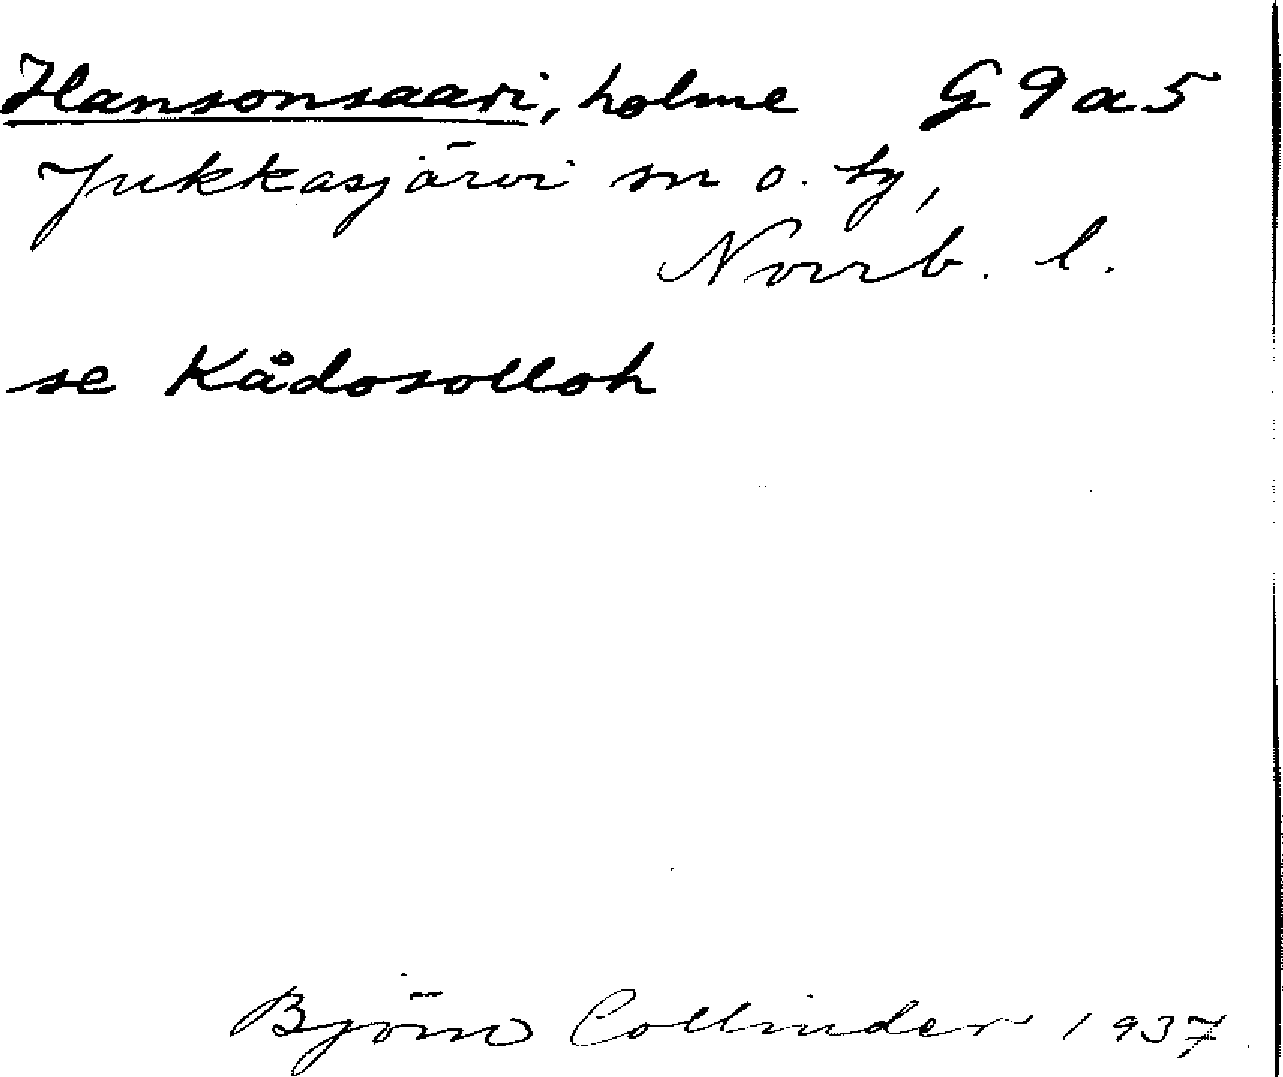 Hansonsaari, holme G9a5
Jukkasjärvi sn o. ty,
Norrb. l.
se Kådosolloh
Björn Collinder 1937